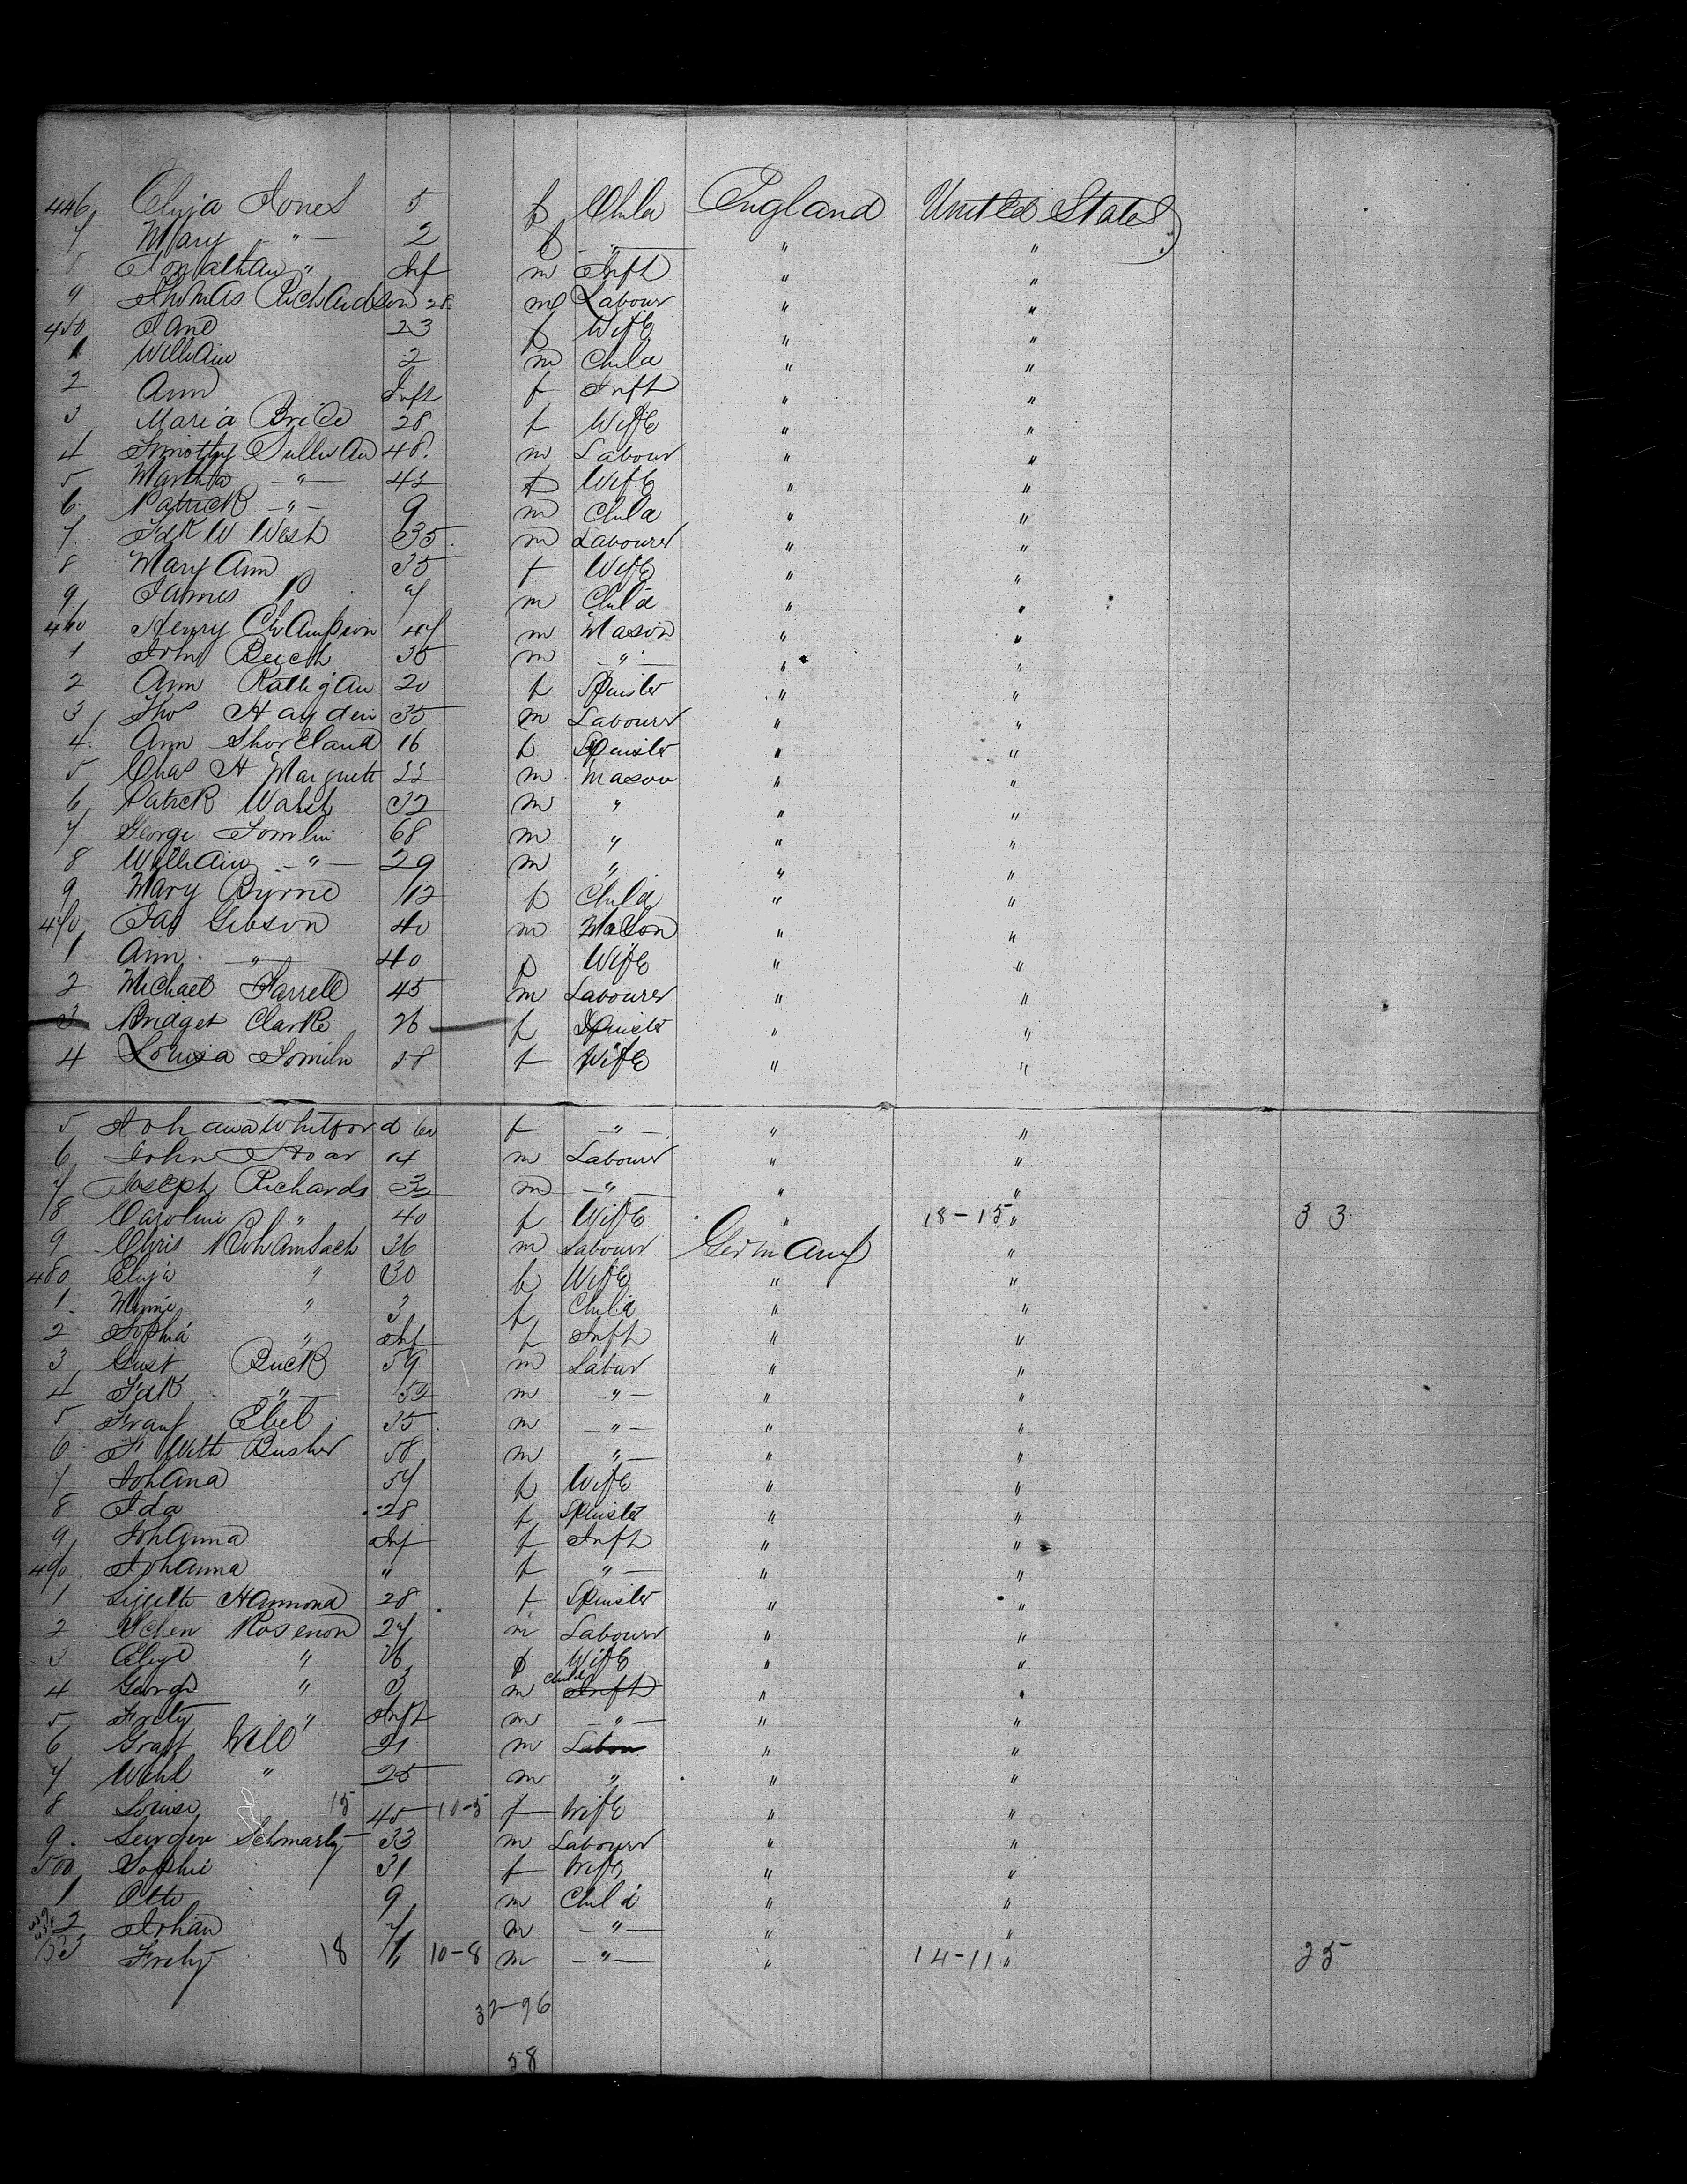 446 Eliza Jones 5 f Child England United States
7 Mary " 2 f " " "
8 Jonathan " Inf m Inft " "
9 Thomas Richardson 28 m Labour " "
450 Jane 23 f Wife " "
1 William 2 m Child " "
2 Ann Inft f Inft " "
3 Maria Brice 28 f Wife " "
4 Timothy Sullivan 48 m Labour " "
5 Martha " 42 f Wife " "
6 Patrick " 9 m Child " "
7 Fdk W West 35 m Labourer " "
8 Mary Ann 35 f Wife " "
9 James P 7 m Child " "
460 Henry Champion 47 m Mason " "
1 John Beech 35 m " " "
2 Ann Rattigan 20 f Spinster " "
3 Thos Hayden 35 m Labourer " "
4 Ann Shoreland 16 f Spinster " "
5 Chas H 22 m Mason " "
6 Patrick Walsh 32 m " " "
7 George Tomlin 68 m " " "
8 William " 29 m " " "
9 Mary Byrne 12 f Child " "
470 Jas Gibson 40 m Mason " "
1 Ann " 40 f Wife " "
2 Michael Farrell 45 m Labourer " "
3 Bridget Clarke 26 f Spinster " "
4 Louisa Tomlin 28 f Wife " "
5 Johana Whitford 60 f " " "
6 John Hoar m Labourer " "
7 Joseph Richards m " " "
8 Caroline " 40 f Wife " 18-15 " 33
9 Chris 36 m Labourer Germany "
480 Eliza " 30 f Wife " "
1 Minnie " 3 f Child " "
2 Sophia " Inf f Inft " "
3 Gust Buck 59 m Labour " "
4 Fdk " 52 m " " "
5 Franz Ebel 35 m " " "
6 F Busher 58 m " " "
7 Johana 57 f Wife " "
8 Ida 28 f Spinster " "
9 Johanna Inf f Inft " "
490 Johanna " f " " "
1 Lizette Hammond 28 f Spinster " "
2 Rosenon 27 m Labourer " "
3 Elize " 26 f Wife " "
4 George " 3 m Child Inft " "
5 Fritz " Inft m " " "
6 21 m Labour " "
7 " 25 m " " "
8 Louise 15 45 10-5 f Wife " "
9 33 m Labourer " "
500 Sophie 31 f Wife " "
1 Otto 9 m Child " "
2 Johan 7 m " " "
3 Fritz 18 10-8 m " " 14-11 " 25
32-26
58